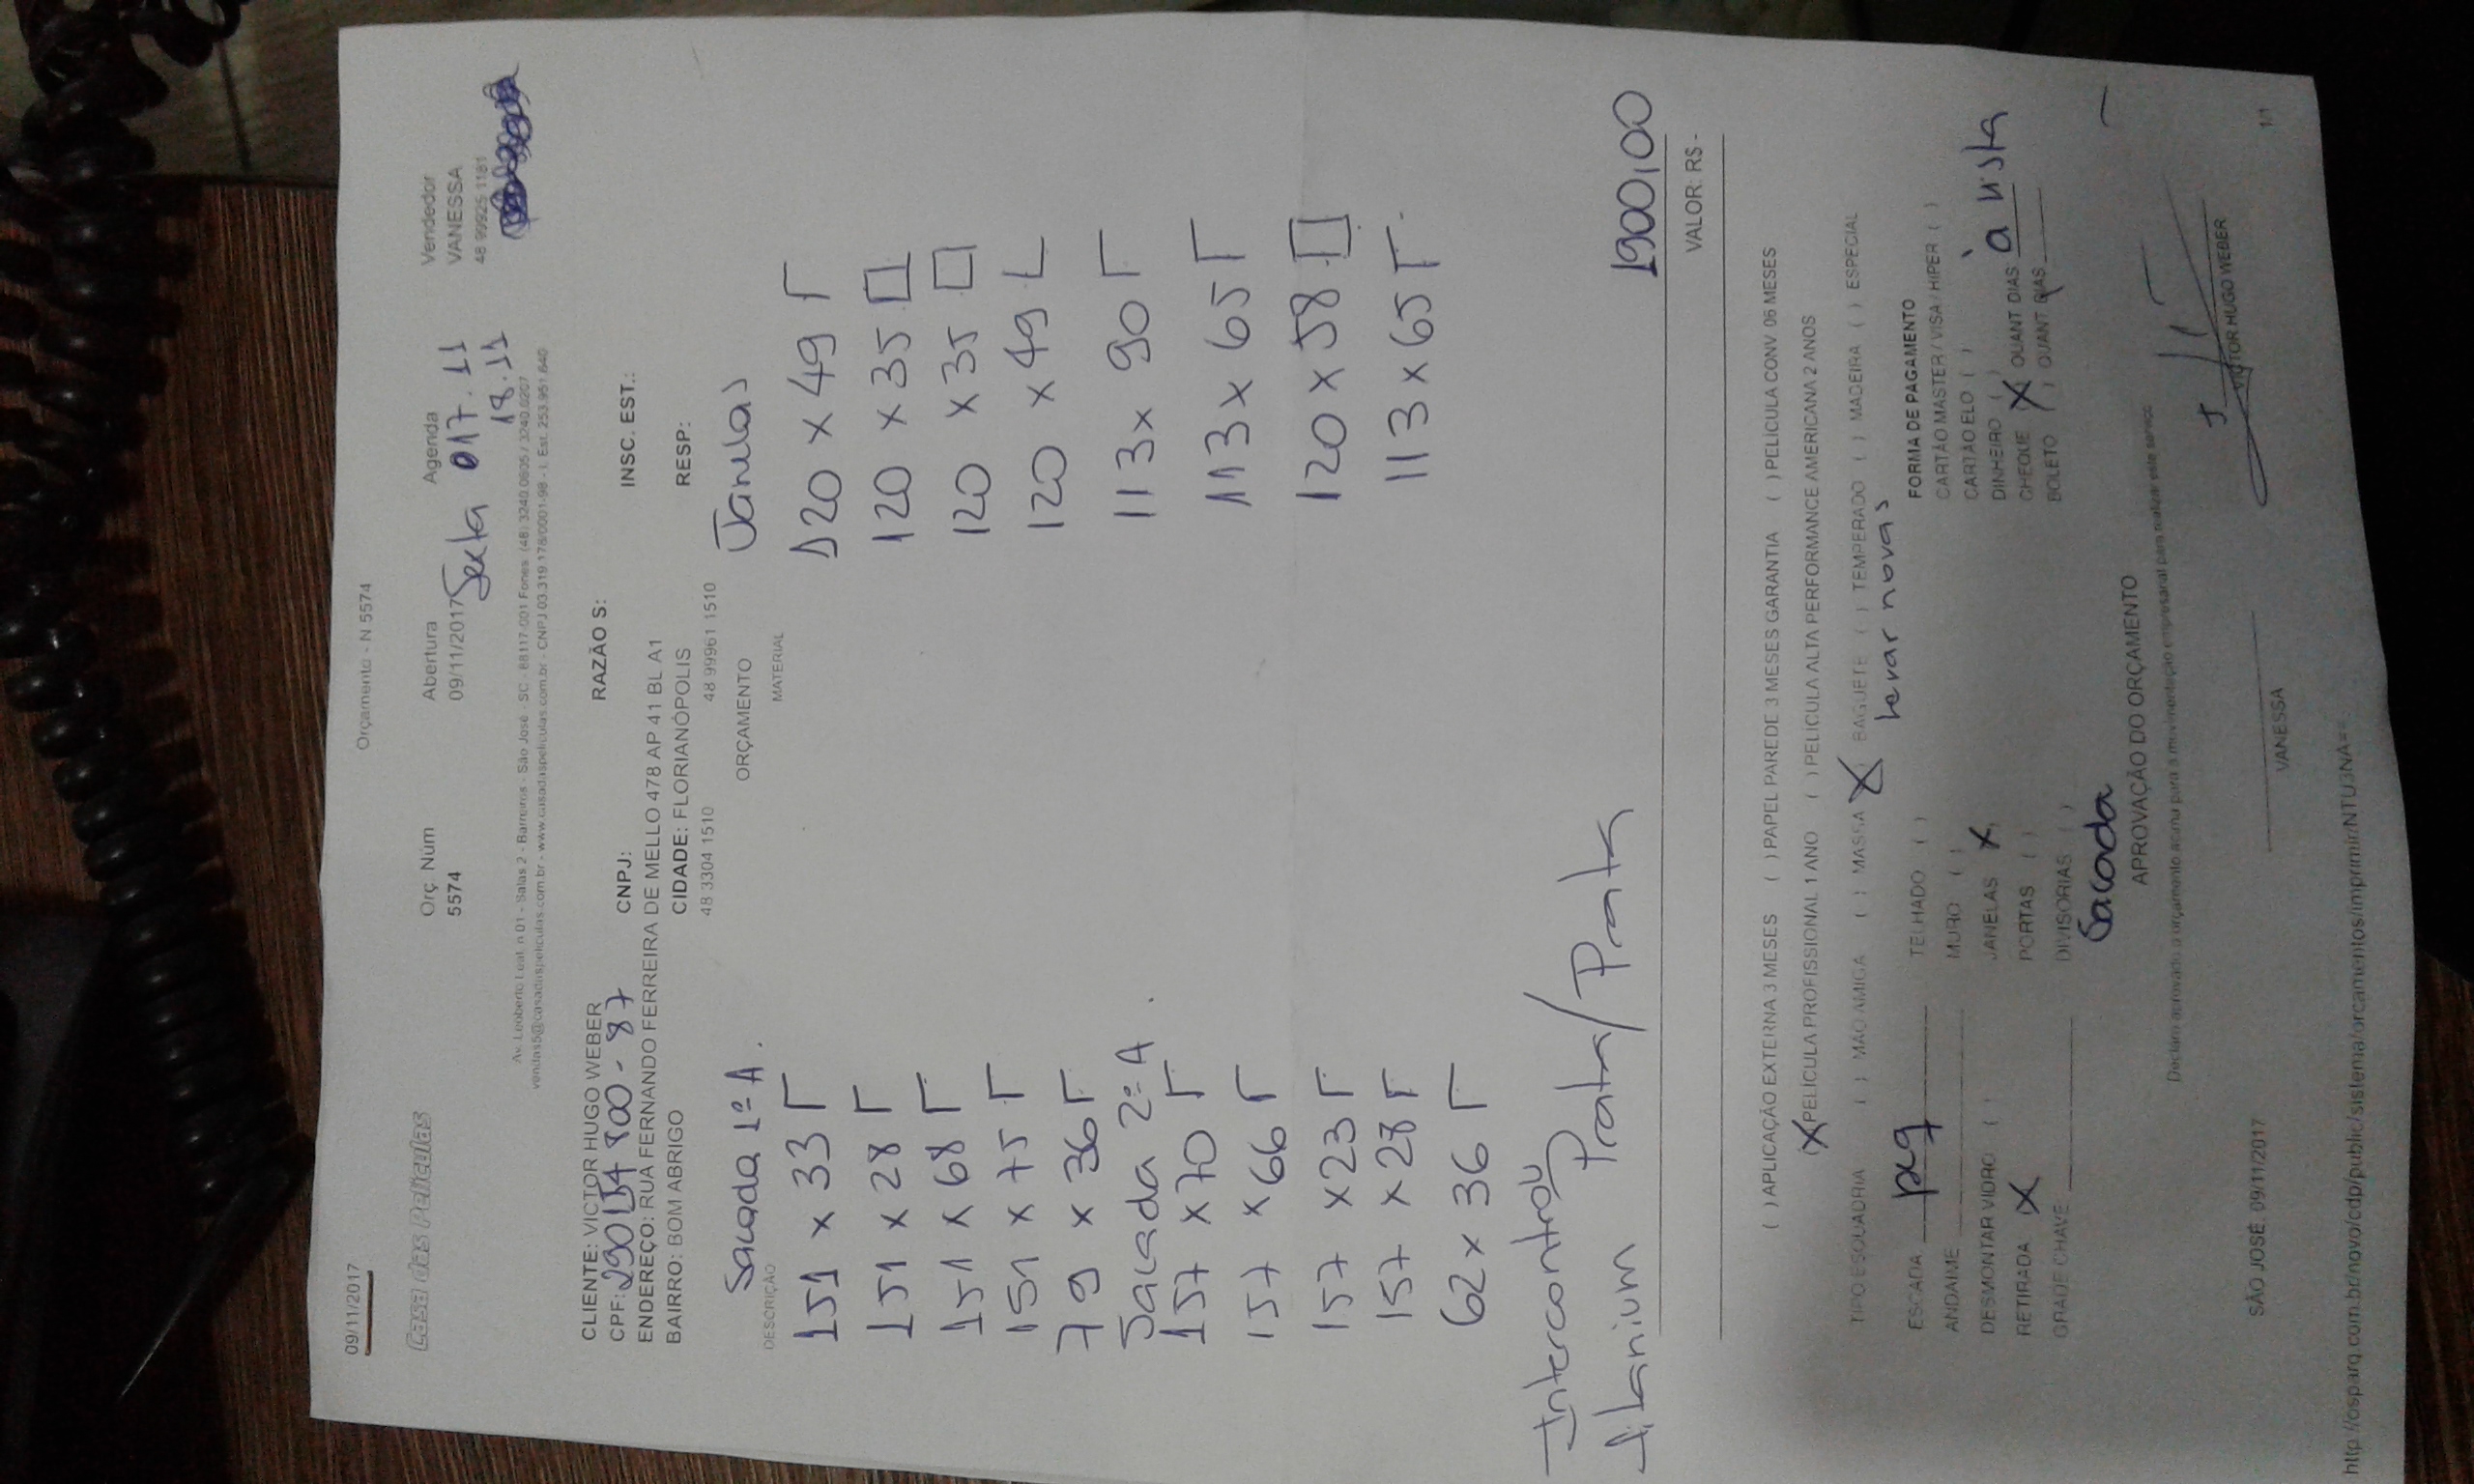 09/11/2017
Orçamento - N 5574
Casa das Películas
Orç. Núm
5574
Abertura
09/11/2017
Agenda
Sexta 017.11
18.11
Vendedor
VANESSA
48 99925 1181
Av. Leoberto Leal, n 01 - Salas 2 - Barreiros - São José - SC - 88117-001 Fones: (48) 3240.0605 / 3240.0207
vendas5@casadaspeliculas.com.br - www.casadaspeliculas.com.br - CNPJ 03.319.178/0001-98 - I. Est. 253.951.640
CLIENTE: VICTOR HUGO WEBER RAZÃO S:
CPF: CNPJ: INSC. EST.:
ENDEREÇO: RUA FERNANDO FERREIRA DE MELLO 478 AP 41 BL A1
BAIRRO: BOM ABRIGO CIDADE: FLORIANÓPOLIS RESP:
48 3304 1510 48 99961 1510
ORÇAMENTO
DESCRIÇÃO MATERIAL
Sacada 1º A.
151 x 33
151 x 28
151 x 68
151 x 75
79 x 36
Sacada 2º A.
157 x 70
157 x 66
157 x 23
157 x 28
62 x 36
Janelas
120 x 49
120 x 35
120 x 35
120 x 49
113 x 90
113 x 65
120 x 58
113 x 65
Intercontrol
Prata/Prata
1900,00
VALOR: R$ -
( ) APLICAÇÃO EXTERNA 3 MESES ( ) PAPEL PAREDE 3 MESES GARANTIA ( ) PELÍCULA CONV 06 MESES
(X) PELÍCULA PROFISSIONAL 1 ANO ( ) PELICULA ALTA PERFORMANCE AMERICANA 2 ANOS
TIPO ESQUADRIA ( ) MÃO AMIGA ( ) MASSA X BAGUETE ( ) TEMPERADO ( ) MADEIRA ( ) ESPECIAL
levar novas
ESCADA peq
ANDAIME
DESMONTAR VIDRO ( )
RETIRADA X
GRADE CHAVE
TELHADO ( )
MURO ( )
JANELAS X
PORTAS ( )
DIVISORIAS ( )
Sacada
FORMA DE PAGAMENTO
CARTÃO MASTER / VISA / HIPER ( )
CARTÃO ELO ( )
DINHEIRO ( )
CHEQUE X QUANT DIAS à vista
BOLETO ( ) QUANT DIAS
APROVAÇÃO DO ORÇAMENTO
Declaro aprovado o orçamento acima para a movimentação empresarial para realizar este serviço
SÃO JOSÉ, 09/11/2017
VANESSA
VICTOR HUGO WEBER
http://osparq.com.br/novo/cdp/public/sistema/orcamentos/imprimir/NTU3NA==
1/1